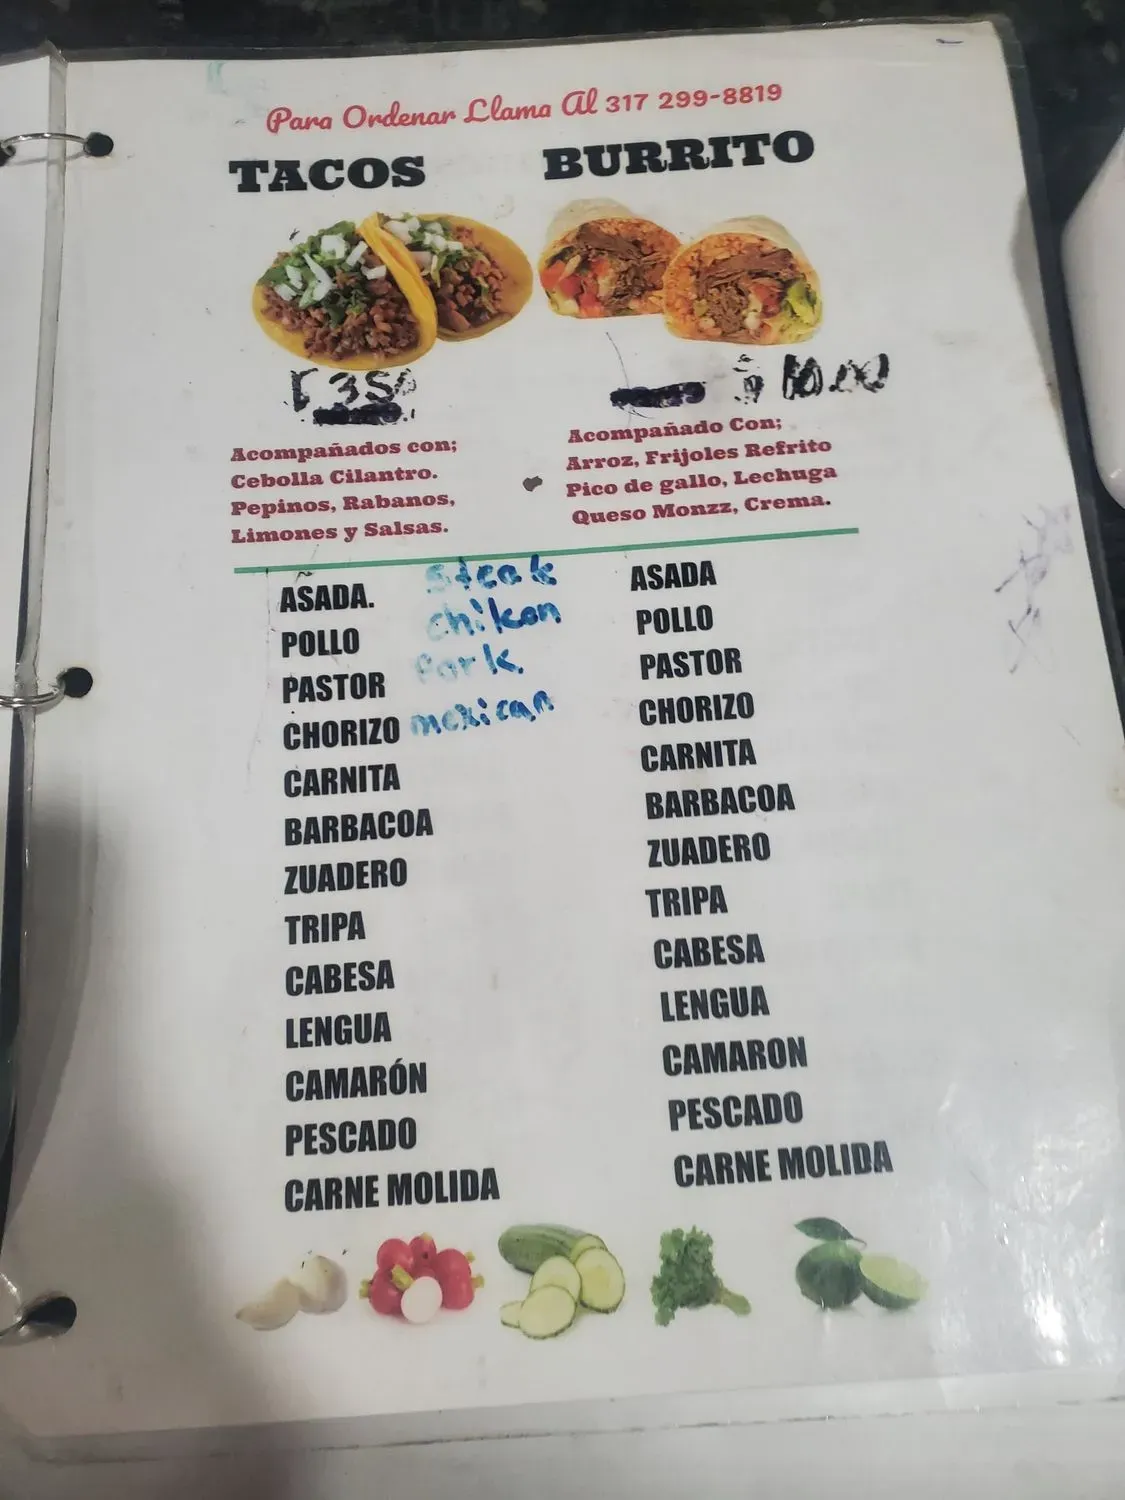 Para Ordenar Llama Al 317 299-8819
TACOS
3.50
Acompañados con;
Cebolla Cilantro.
Pepinos, Rabanos,
Limones y Salsas.
BURRITO
$ 10.00
Acompañado Con;
Arroz, Frijoles Refrito
Pico de gallo, Lechuga
Queso Monzz, Crema.
ASADA. steak
POLLO chiken
PASTOR Pork.
CHORIZO mexican
CARNITA
BARBACOA
ZUADERO
TRIPA
CABESA
LENGUA
CAMARÓN
PESCADO
CARNE MOLIDA
ASADA
POLLO
PASTOR
CHORIZO
CARNITA
BARBACOA
ZUADERO
TRIPA
CABESA
LENGUA
CAMARON
PESCADO
CARNE MOLIDA